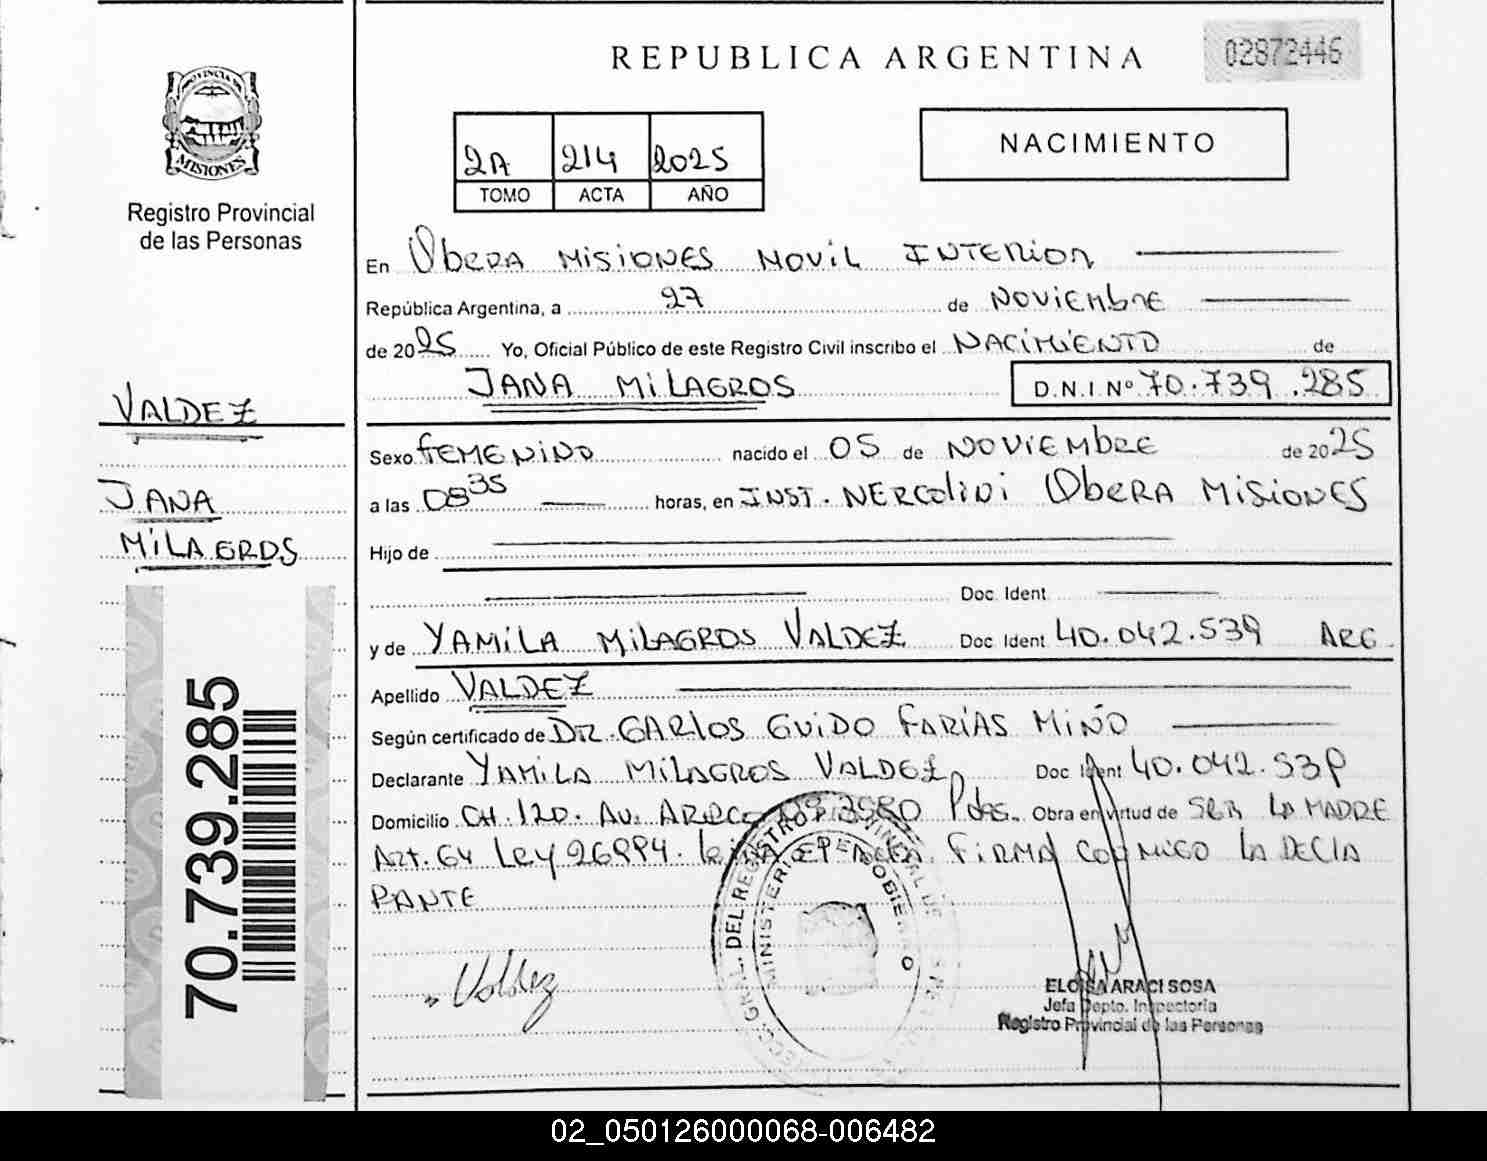 REPUBLICA ARGENTINA
02872446
PROVINCIA DE
MISIONES
Registro Provincial
de las Personas
2A 214 2025
TOMO ACTA AÑO
NACIMIENTO
En Obera Misiones Movil Interior
República Argentina, a 27 de Noviembre
de 2025 Yo, Oficial Público de este Registro Civil inscribo el NACIMIENTO de
JANA MILAGROS D.N.I.Nº 70.739.285
VALDEZ
JANA
MILAGROS
70.739.285
Sexo FEMENINO nacido el 05 de NOVIEMBRE de 2025
a las 08 35 horas, en INST. NERCOLINI OBERA MISIONES
Hijo de
Doc. Ident
y de YAMILA MILAGROS VALDEZ Doc Ident 40.042.539 ARG
Apellido VALDEZ
Según certificado de DR. CARLOS GUIDO FARIAS MIÑO
Declarante YAMILA MILAGROS VALDEZ Doc Ident 40.042.539
Domicilio CH. 120. AV. Pdas. Obra en virtud de SER LA MADRE
Art. 64 Ley 26994. FIRMA CONMIGO LA DECLA
RANTE
Valdez
DEL REGISTRO
MINISTERIO DE GOBIERNO
ELOISA ARACI SOSA
Jefa Depto. Inspectoria
Registro Provincial de las Personas
02_050126000068-006482